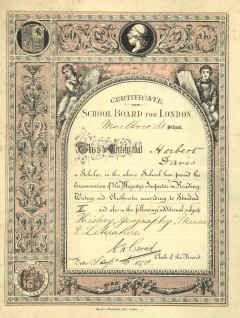 CERTIFICATE
SCHOOL BOARD FOR LONDON.
School.
This is to Certify that Herbert
Davis
a Scholar in the above School has passed the
Examination of Her Majesty's Inspector in Reading,
Writing and Arithmetic according to Standard
and also in the following additional subjects
History, Geography,
& Literature
Clerk of the Board.
Date